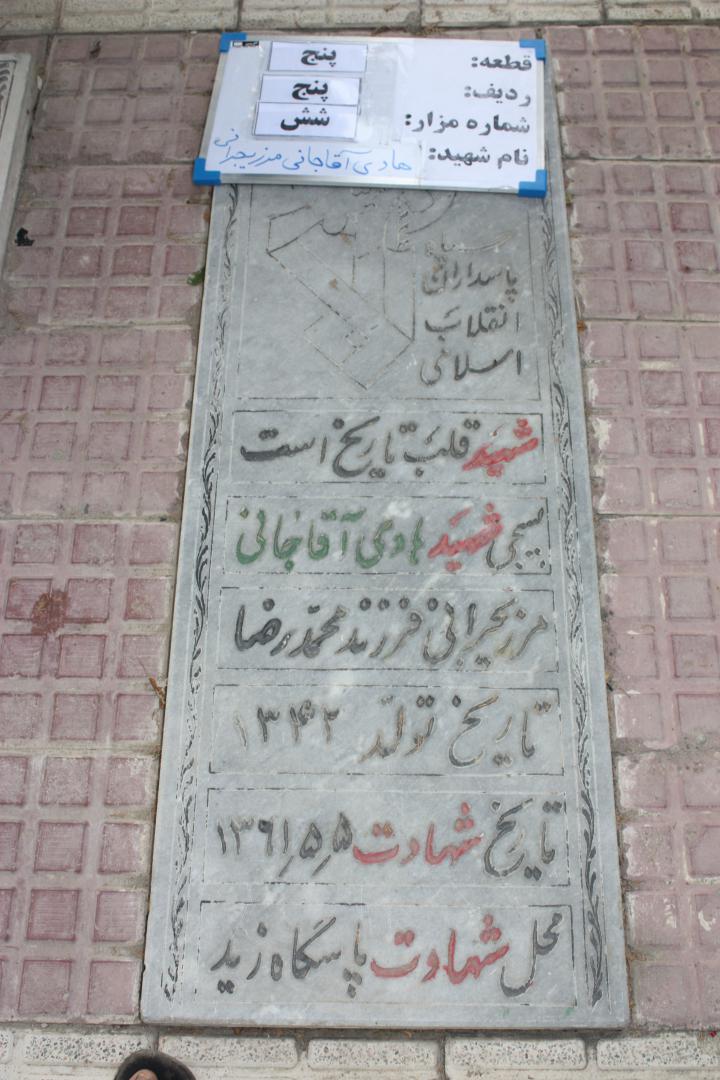 قطعه: پنج
ردیف: پنج
شماره مزار: شش
نام شهید: هادی آقاجانی مرزیجرانی
سپاه
پاسداران
انقلاب
اسلامی
شهید قلب تاریخ است
بسیجی شهید هادی آقاجانی
مرزیجرانی فرزند محمدرضا
تاریخ تولد ۱۳۴۲
تاریخ شهادت ۱۳۶۱٫۵٫۵
محل شهادت پاسگاه زید